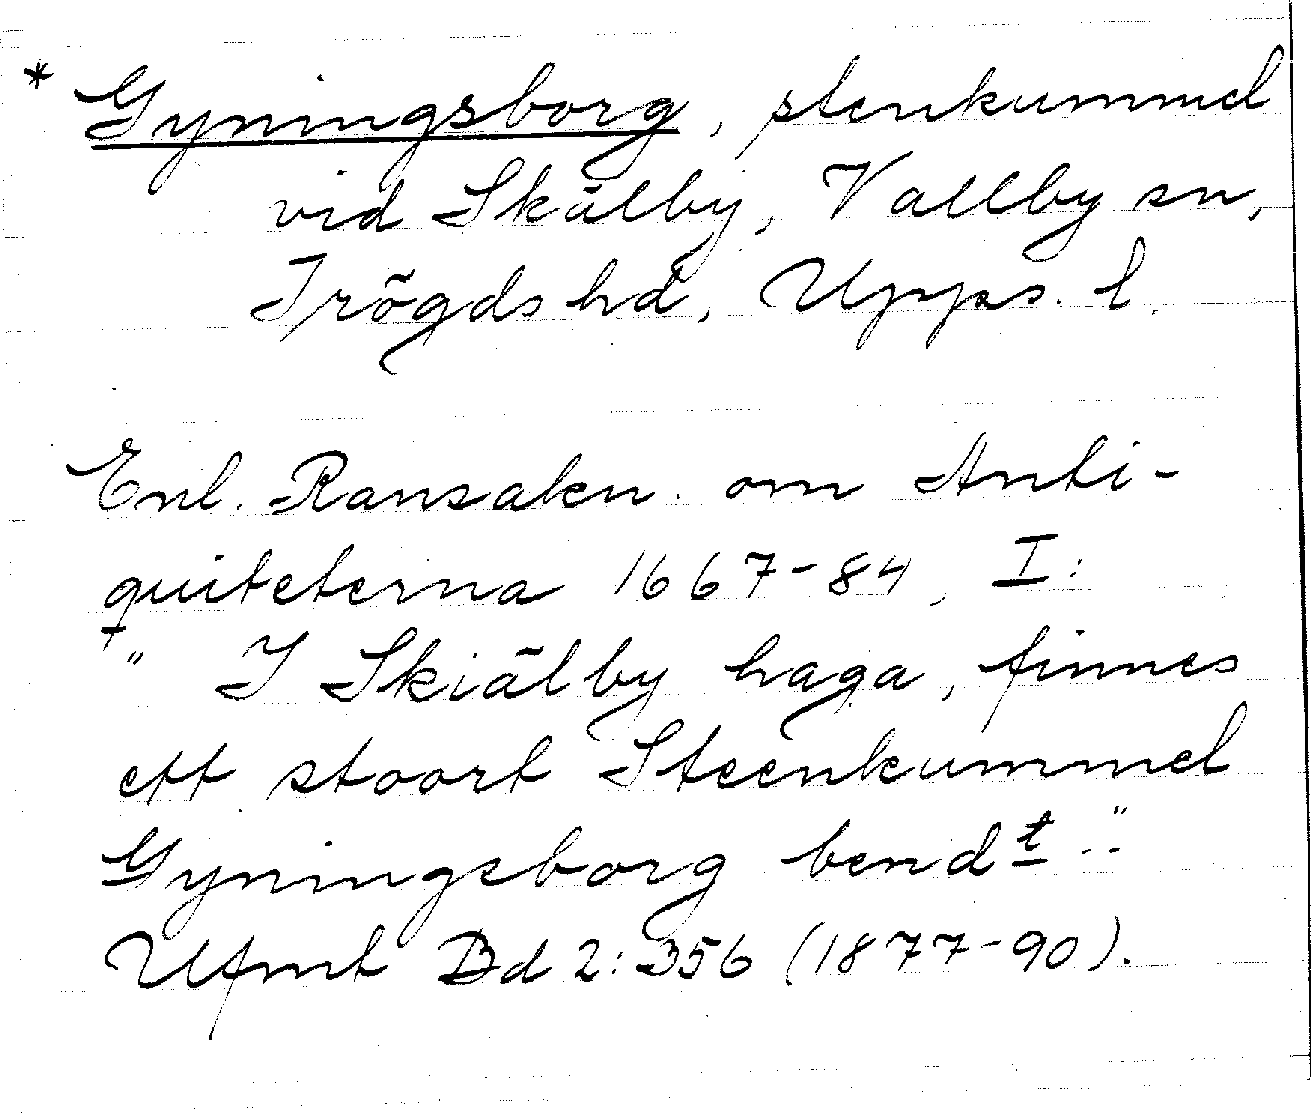 * Gyningsborg, stenkummel
vid Skälby, Vallby sn,
Trögds hd, Upps. l.
Enl. Ransaken. om Anti-
quiteterna 1667-84, I:
" I Skiälby haga, finnes
ett stoort Steenkummel
Gyningsborg bendt.."
Ufmt Bd 2: 356 (1877-90).